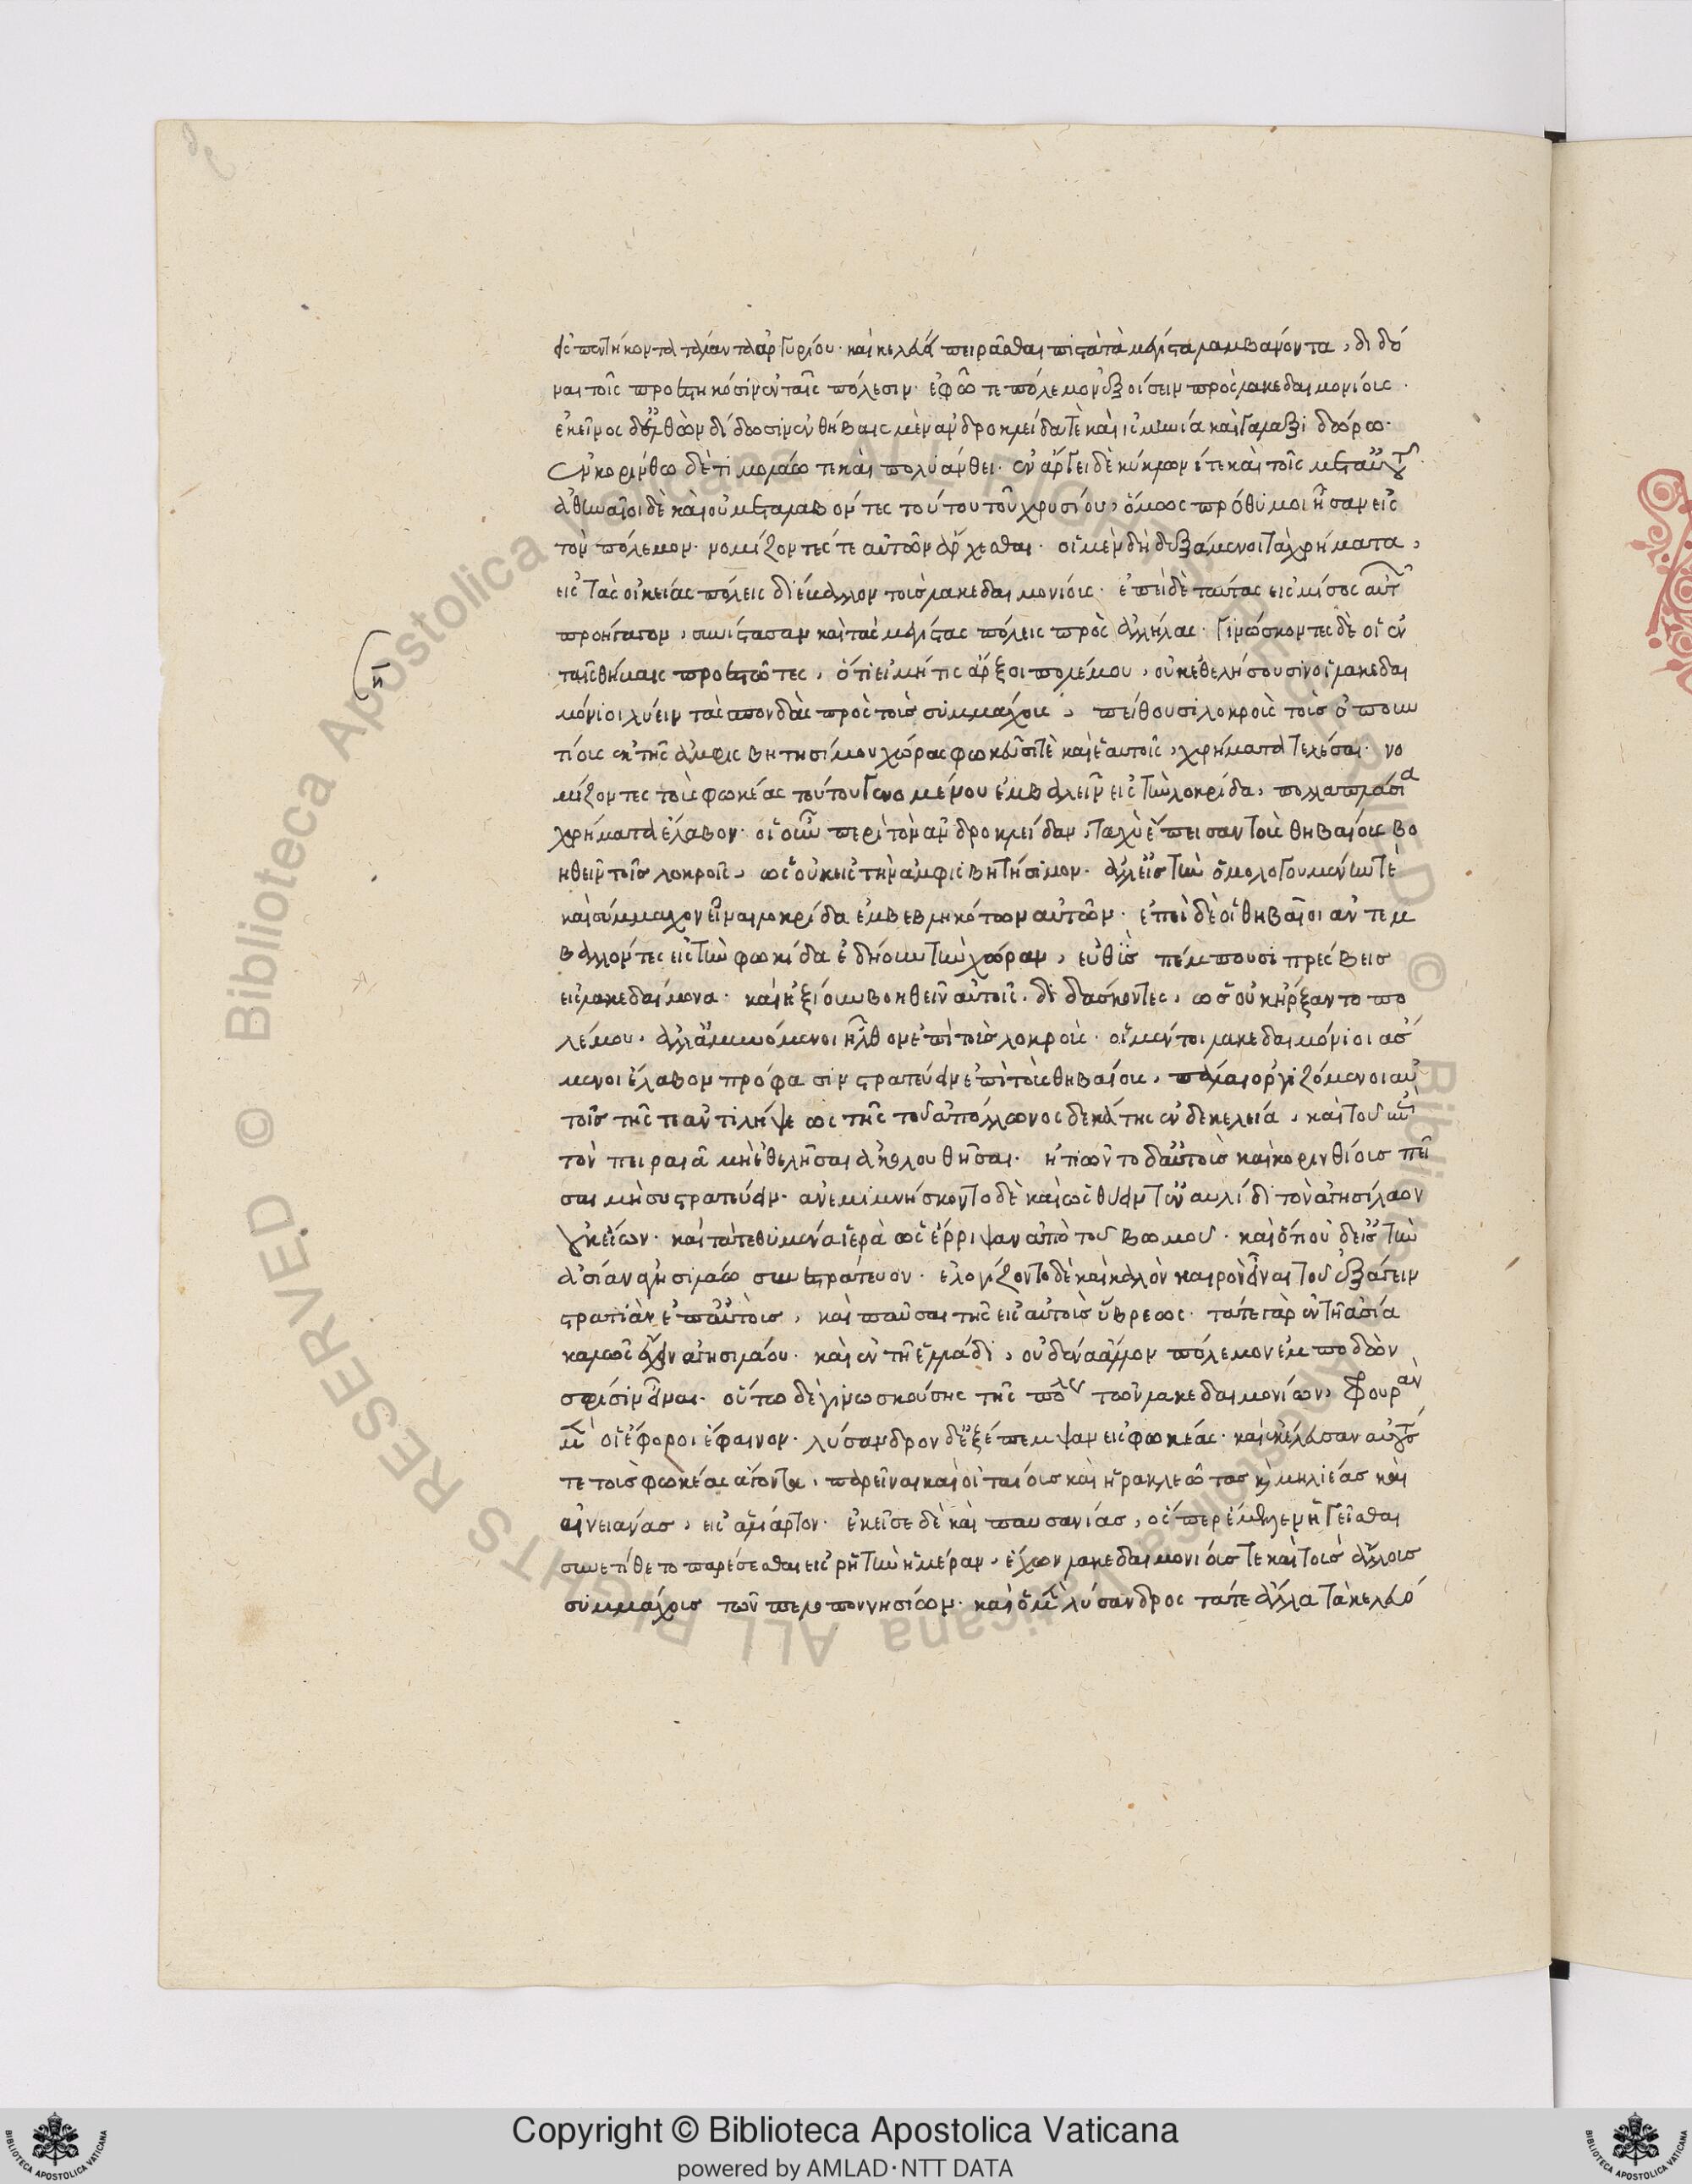 ἐς πεντήκοντα τάλαντα ἀργυρίου· καὶ κελεύει πειρᾶσθαι πιστὰ τὰ μέγιστα λαμβάνοντα, διδό
ναι τοῖς προεστηκόσιν ἐν ταῖς πόλεσιν· ἐφ' ᾧ τε πόλεμον ἐξοίσειν πρὸς λακεδαιμονίοις·
ἐκεῖνος δ' ἐλθὼν δίδωσιν ἐν θήβαις μὲν ἀνδροκλείδα τὲ καὶ ἰσμηνία καὶ γαλαξιδώρω·
ἐν κορίνθω δὲ τιμολάω τε καὶ πολυάνθει· ἐν ἄργει δὲ κύκλωνί τε καὶ τοῖς μετ' αὐτοῦ·
ἀθηναῖοι δὲ καὶ οὐ μεταλαβόντες τούτου τοῦ χρυσίου, ὅμως πρόθυμοι ἦσαν εἰς
τὸν πόλεμον· νομίζοντές τε αὐτῶν ἄρχεσθαι· οἱ μὲν δὴ δεξάμενοι τὰ χρήματα,
εἰς τὰς οἰκείας πόλεις διέβαλλον τοὺς λακεδαιμονίους· ἐπεὶ δὲ ταύτας εἰς μῖσος αὐτῶν
προήγαγον, συνίστασαν καὶ τὰς μεγίστας πόλεις πρὸς ἀλλήλας· γινώσκοντες δὲ οἱ ἐν
ταῖς θήβαις προεστῶτες, ὅτι εἰ μή τις ἄρξοι πολέμου, οὐκ ἐθελήσουσιν οἱ λακεδαι
μόνιοι λύειν τὰς σπονδὰς πρὸς τοὺς συμμάχους, πείθουσι λοκροὺς τοὺς ὀπουν
τίους ἐκ τῆς ἀμφισβητησίμου χώρας φωκεῦσί τε καὶ ἑαυτοῖς, χρήματα τελέσαι· νο
μίζοντες τοὺς φωκέας τούτου γενομένου ἐμβαλεῖν εἰς τὴν λοκρίδα, πολλαπλάσια
χρήματα ἔλαβον· οἱ οὖν περὶ τὸν ἀνδροκλείδαν, ταχὺ ἔπεισαν τοὺς θηβαίους βο
ηθεῖν τοῖς λοκροῖς, ὡς οὐκ εἰς τὴν ἀμφισβητήσιμον· ἀλλ' εἰς τὴν ὁμολογουμένην τὲ
καὶ σύμμαχον εἶναι λοκρίδα ἐμβεβληκότων αὐτῶν· ἐπεὶ δὲ οἱ θηβαῖοι ἀντεμ
βαλλόντες εἰς τὴν φωκίδα ἐδήουν τὴν χώραν, εὐθὺς πέμπουσι πρέσβεις
εἰς λακεδαίμονα· καὶ ἠξίουν βοηθεῖν αὐτοῖς· διδάσκοντες, ὡς οὐκ ἤρξαντο πο
λέμου· ἀλλ' ἀμυνόμενοι ἦλθον ἐπὶ τοὺς λοκρούς· οἱ μέντοι λακεδαιμόνιοι ἄσ
μενοι ἔλαβον πρόφασιν στρατεύειν ἐπὶ τοὺς θηβαίους, πάλαι ὀργιζόμενοι αὐ
τοῖς τῆς τε ἀντιλήψεως τῆς τοῦ ἀπόλλωνος δεκάτης ἐν δεκελεία, καὶ τοῦ ἐπὶ
τὸν πειραιᾶ μὴ ἐθελῆσαι ἀκολουθῆσαι· ἠτιῶντο δ' αὐτοὺς καὶ κορινθίους πεῖ
σαι μὴ συστρατεύειν· ἀνεμιμνήσκοντο δὲ καὶ ὡς θύειν τ' ἐν αὐλίδι τὸν ἀγησίλαον
οὐκ εἴων· καὶ τὰ τεθυμένα ἱερὰ ὡς ἔρριψαν ἀπὸ τοῦ βωμοῦ· καὶ ὅτι οὐδ' εἰς τὴν
ἀσίαν ἀγησιλάω συνεστράτευον· ἐλογίζοντο δὲ καὶ καλὸν καιρὸν εἶναι τοῦ ἐξάγειν
στρατιὰν ἐπ' αὐτοὺς, καὶ παῦσαι τῆς εἰς αὐτοὺς ὕβρεως· τά τε γὰρ ἐν τῆ ἀσία
καλῶς ἔχειν ἀγησιλάου· καὶ ἐν τῆ ἑλλάδι, οὐδένα ἄλλον πόλεμον ἐμποδὼν
σφίσιν εἶναι· οὕτω δὲ γινωσκούσης τῆς πόλεως τῶν λακεδαιμονίων, φρουρὰν
μὲν οἱ ἔφοροι ἔφαινον· λύσανδρον δ' ἐξέπεμψαν εἰς φωκέας· καὶ ἐκέλευσαν αὐτούς
τε τοὺς φωκέας ἄγοντα, παρεῖναι καὶ οἰταίους καὶ ἡρακλεώτας καὶ μηλιέας καὶ
αἰνειάνας, εἰς ἁλίαρτον· ἐκεῖσε δὲ καὶ παυσανίας, ὅσπερ ἔμελλεν ἡγεῖσθαι
συνετίθετο παρέσεσθαι εἰς ῥητὴν ἡμέραν, ἔχων λακεδαιμονίους τε καὶ τοὺς ἄλλους
συμμάχους τῶν πελοποννησίων· καὶ ὁ μὲν λύσανδρος τά τε ἄλλα τὰ κελευό